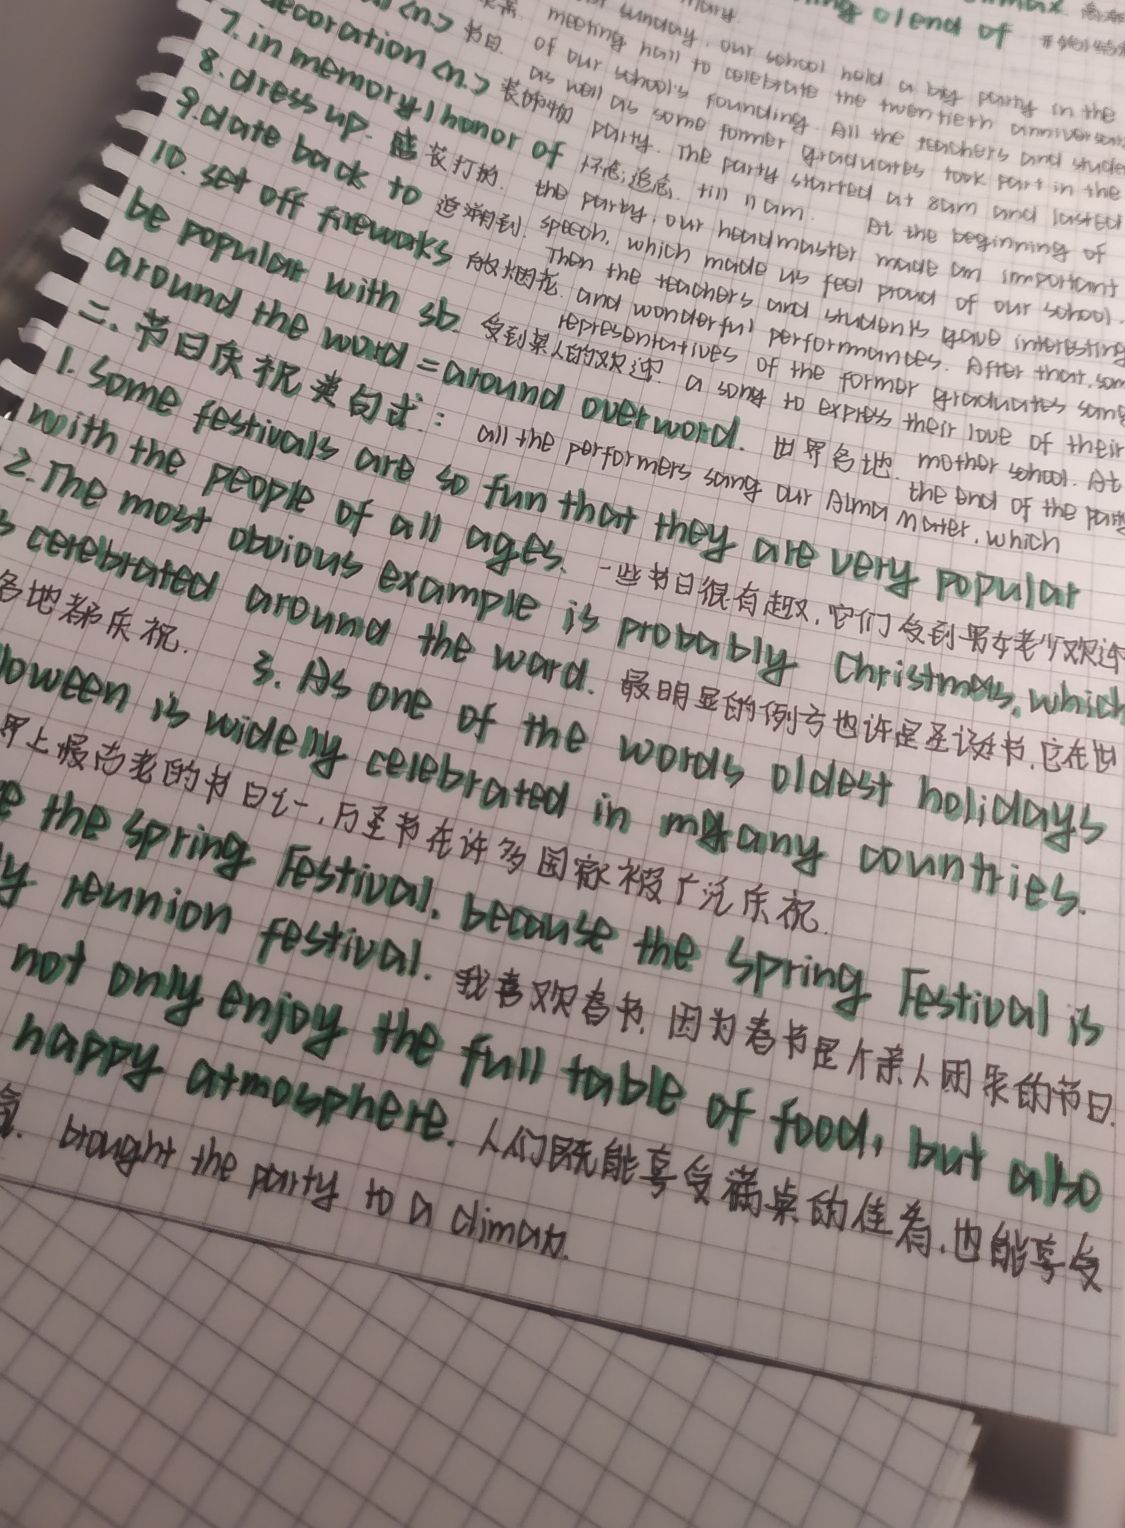 decoration <n.> 装饰物
7. in memory / honor of 怀念;追念.
8. dress up. 盛装打扮.
9. date back to 追溯到.
10. set off fireworks 放烟花.
be popular with sb. 受到某人的欢迎.
around the word = around over word. 世界各地.
二. 节日庆祝类句式:
1. Some festivals are so fun that they are very popular
with the people of all ages. 一些节日很有趣,它们受到男女老少欢迎
2. The most obvious example is probably Christmas, which
celebrated around the word. 最明显的例子也许是圣诞节,它在世
各地都庆祝. 3. As one of the words oldest holidays
loween is widely celebrated in many countries.
界上最古老的节日之一,万圣节在许多国家被广泛庆祝.
the Spring Festival, because the Spring Festival is
y reunion festival. 我喜欢春节,因为春节是个亲人团聚的节日.
not only enjoy the full table of food, but also
happy atmosphere. 人们既能享受满桌的佳肴,也能享受
end of
Sunday, our school held a big party in the
meeting hall to celebrate the twentieth anniversary
of our school's founding. All the teachers and stude
as well as some former graduates took part in the
party. The party started at 8am and lasted
till 11am. At the beginning of
the party, our headmaster made an important
speech, which made us feel proud of our school.
Then the teachers and students gave interesting
and wonderful performances. After that, som
representatives of the former graduates sang
a song to express their love of their
mother school. At
the end of the party
all the performers sang our Alma Mater, which
brought the party to a climax.